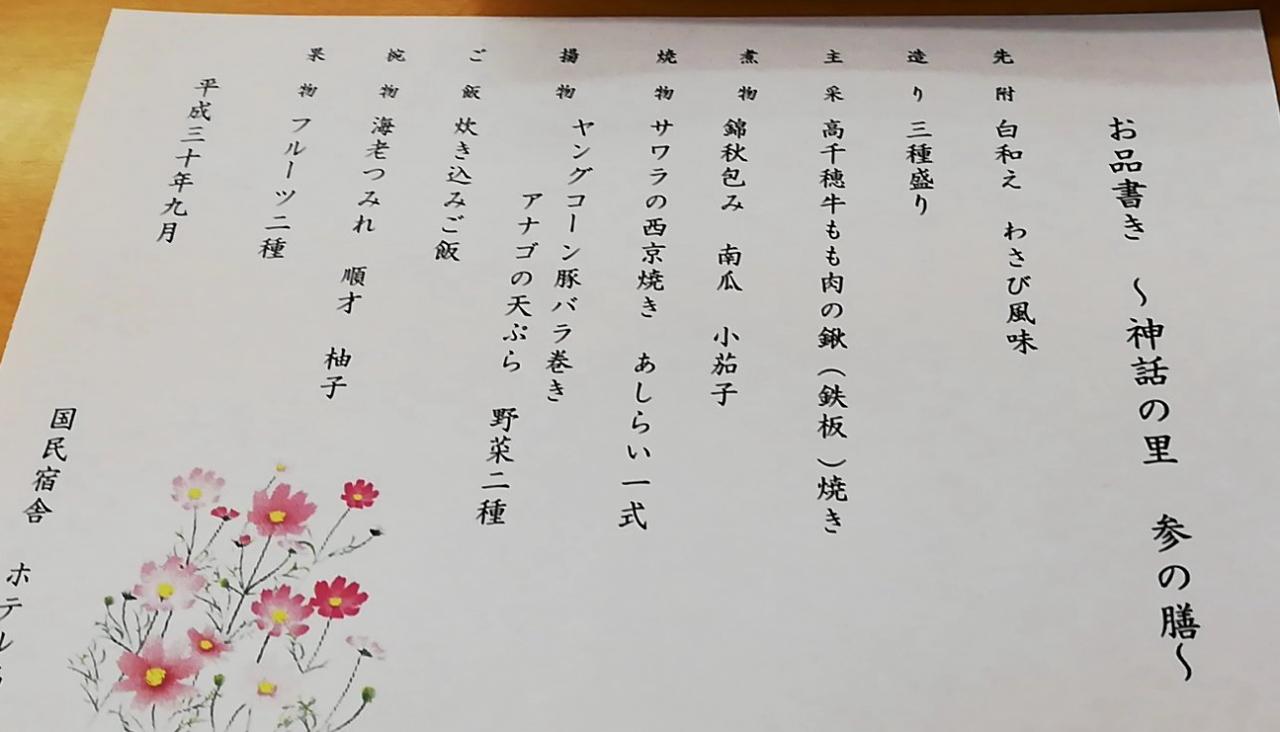 お品書き ～神話の里 参の膳～
先附 白和え わさび風味
造り 三種盛り
主采 高千穂牛もも肉の鍬（鉄板）焼き
煮物 錦秋包み 南瓜 小茄子
焼物 サワラの西京焼き あしらい一式
揚物 ヤングコーン豚バラ巻き
アナゴの天ぷら 野菜二種
ご飯 炊き込みご飯
椀物 海老つみれ 順才 柚子
果物 フルーツ二種
平成三十年九月
国民宿舎 ホテル